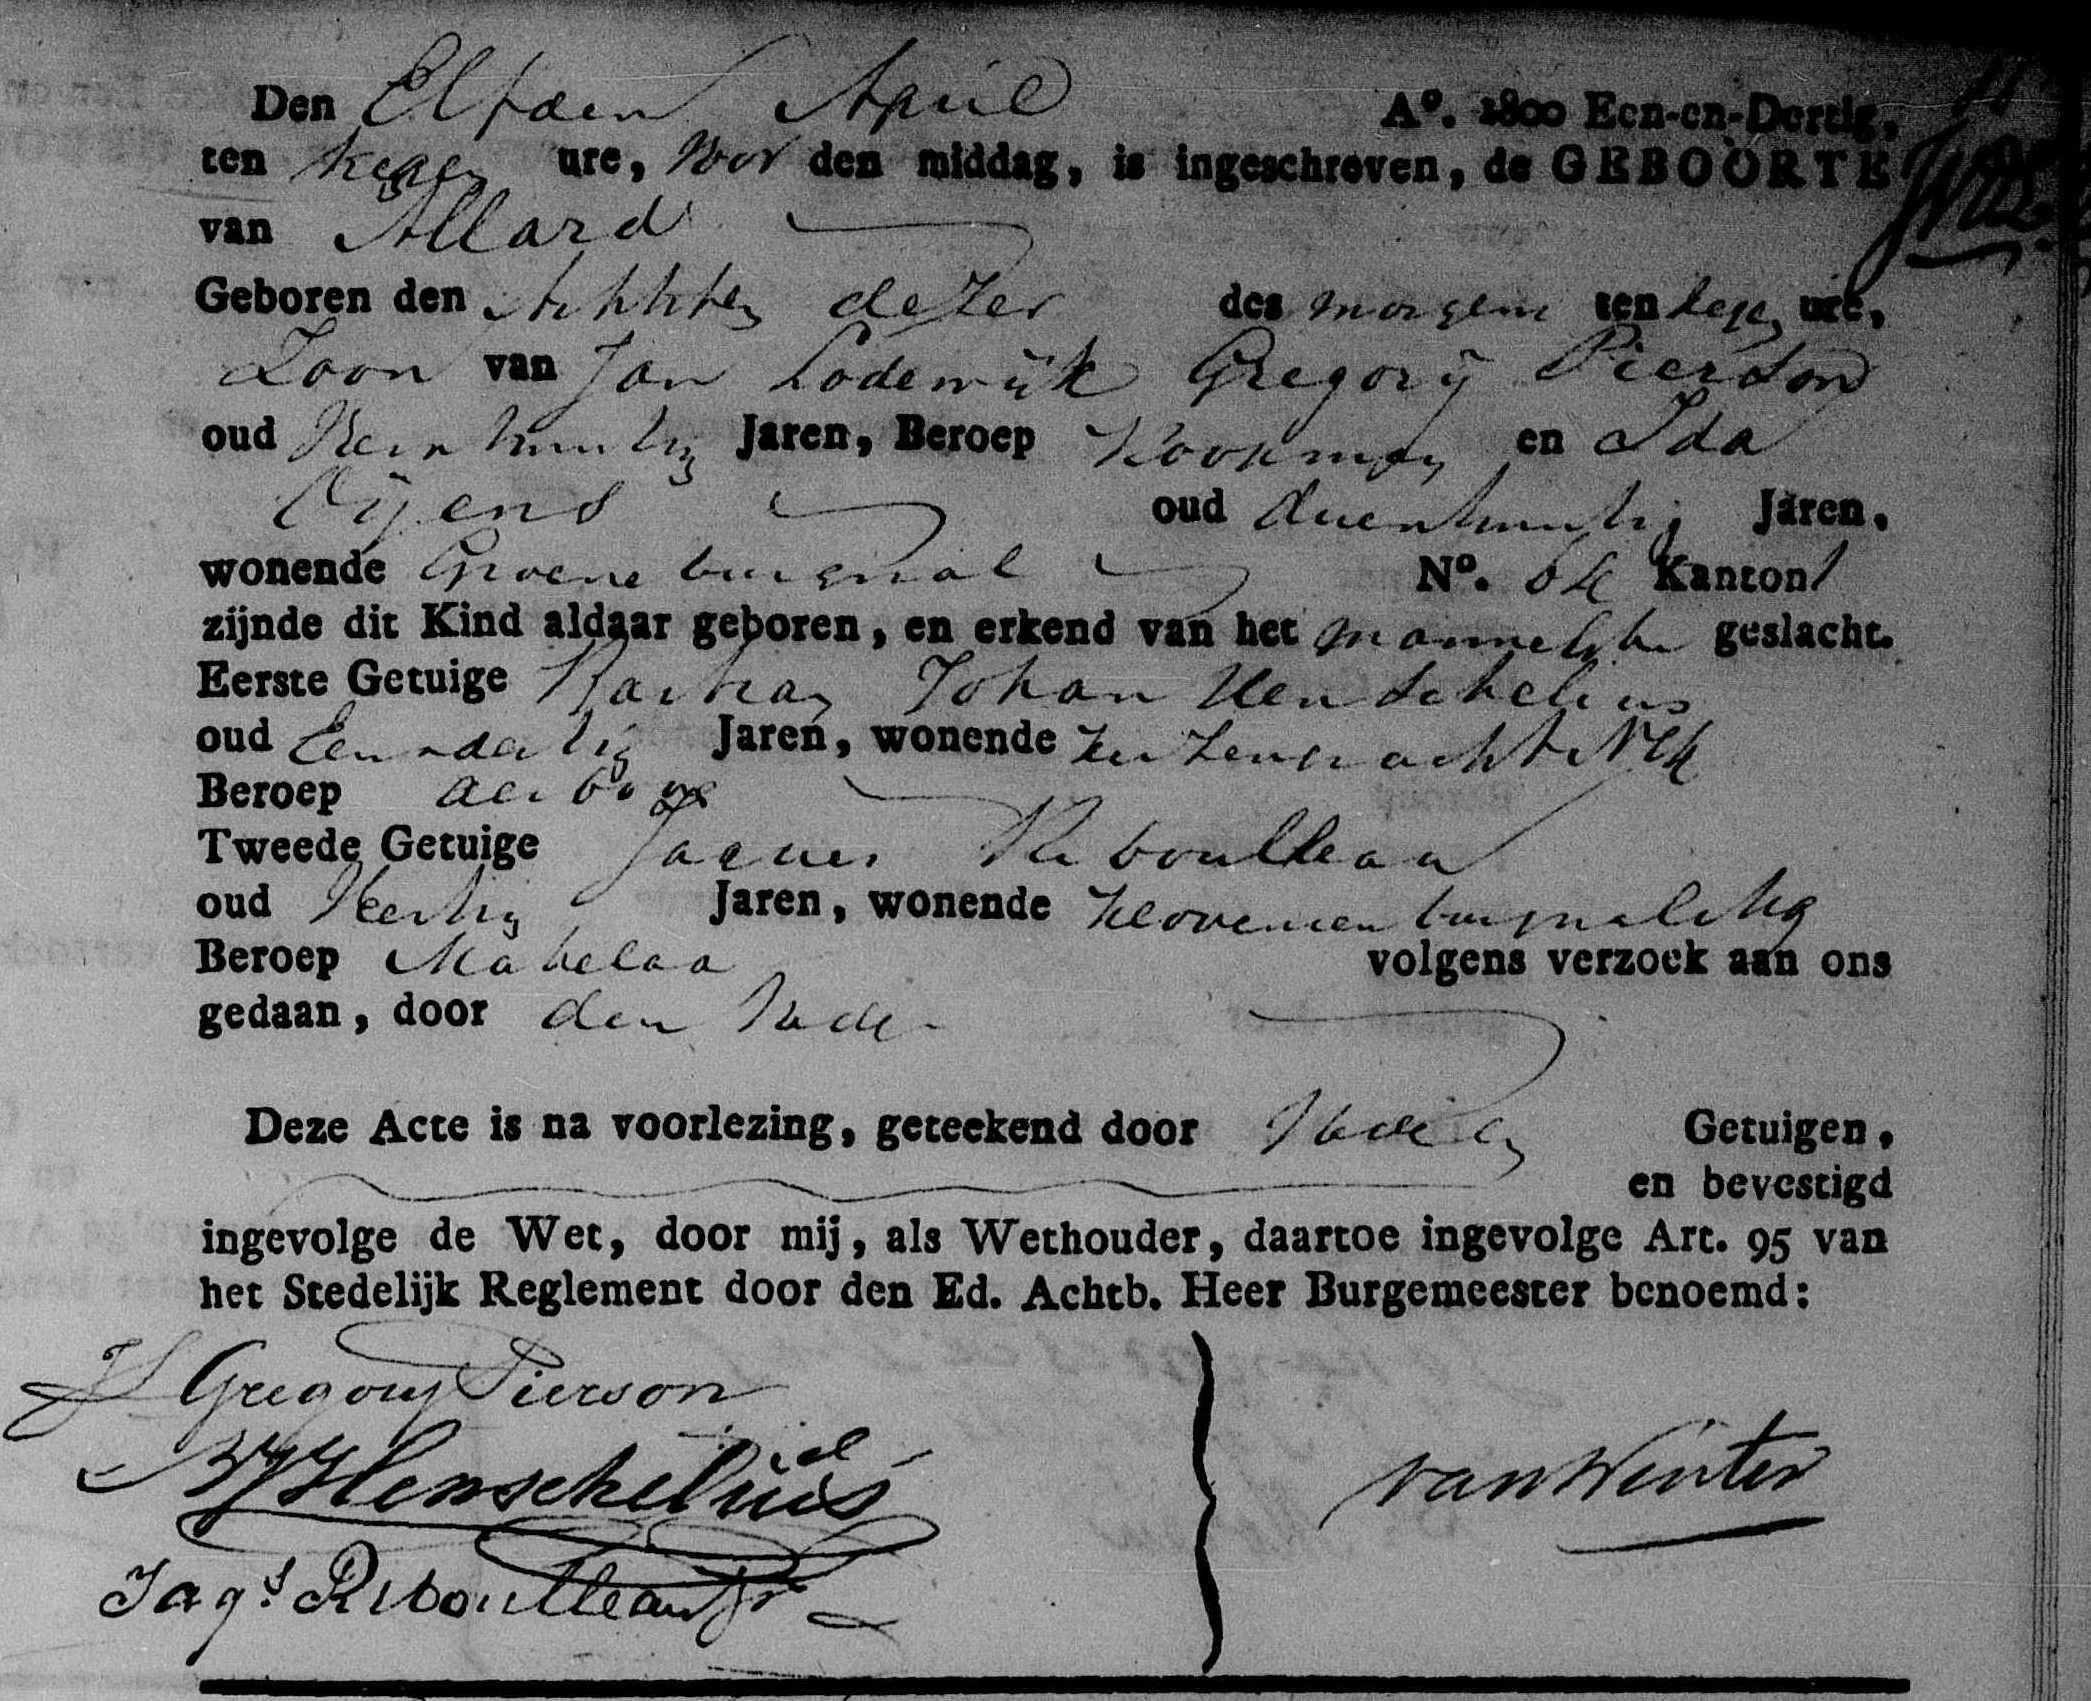 Den Elfden April Aº. 1800 Een-en-Dertig,
ten ure, voor den middag, is ingeschreven, de GEBOORTE
van Allard
Geboren den Achtsten dezer des morgens ten ure,
Zoon van Jan Lodewijk Gregorij Pierson
oud Jaren, Beroep Koopman en Ida
Oijens oud Jaren,
wonende Groene burgwal Nº. Kanton 1
zijnde dit Kind aldaar geboren, en erkend van het mannelijke geslacht.
Eerste Getuige Johan Henschelius
oud Eenendertig Jaren, wonende Keizersgracht
Beroep
Tweede Getuige Jaques Riboulleau
oud Veertig Jaren, wonende Kloveniersburgwal
Beroep Makelaar volgens verzoek aan ons
gedaan, door den Vader
Deze Acte is na voorlezing, geteekend door Vader en Getuigen,
en bevestigd
ingevolge de Wet, door mij, als Wethouder, daartoe ingevolge Art. 95 van
het Stedelijk Reglement door den Ed. Achtb. Heer Burgemeester benoemd:
JL Gregory Pierson
Henschelius
van Winter
Jaqs. Riboulleau Jr